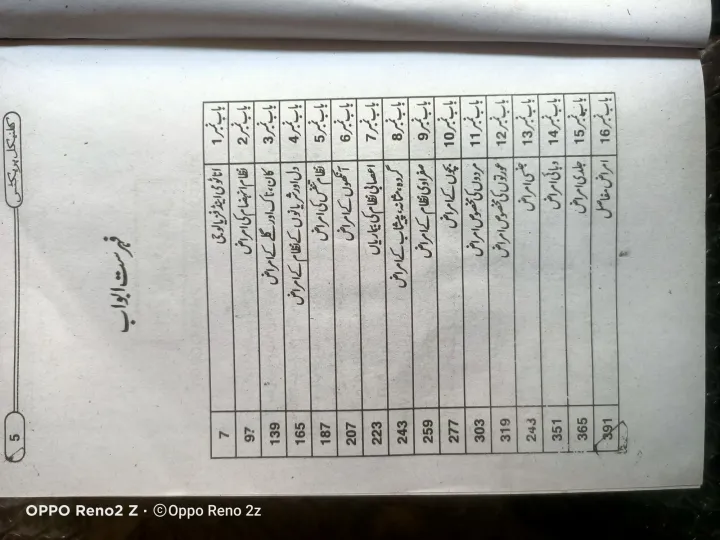 5
کلینیکل پریکٹس
فہرست ابواب
باب نمبر 1 اناٹومی اینڈ فزیالوجی 7
باب نمبر 2 نظام انہضام کی امراض 97
باب نمبر 3 کان، ناک اور گلے کے امراض 139
باب نمبر 4 دل اور شریانوں کے نظام کے امراض 165
باب نمبر 5 نظام تنفس کی امراض 187
باب نمبر 6 آنکھوں کے امراض 207
باب نمبر 7 اعصابی نظام کی بیماریاں 223
باب نمبر 8 گردہ، مثانہ، پیشاب کے امراض 243
باب نمبر 9 صفراوی نظام کے امراض 259
باب نمبر 10 بچوں کے امراض 277
باب نمبر 11 مردوں کی مخصوص امراض 303
باب نمبر 12 عورتوں کی مخصوص امراض 319
باب نمبر 13 جنسی امراض 243
باب نمبر 14 وبائی امراض 351
باب نمبر 15 جلدی امراض 365
باب نمبر 16 امراض مفاصل 391
OPPO Reno2 Z · ©Oppo Reno 2z